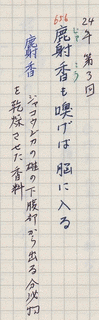 24年 第3回
656
じゃ こう
麝香も嗅げば脳に入る
麝香
ジャコウジカの雄の下腹部から出る分泌物
を乾燥させた香料